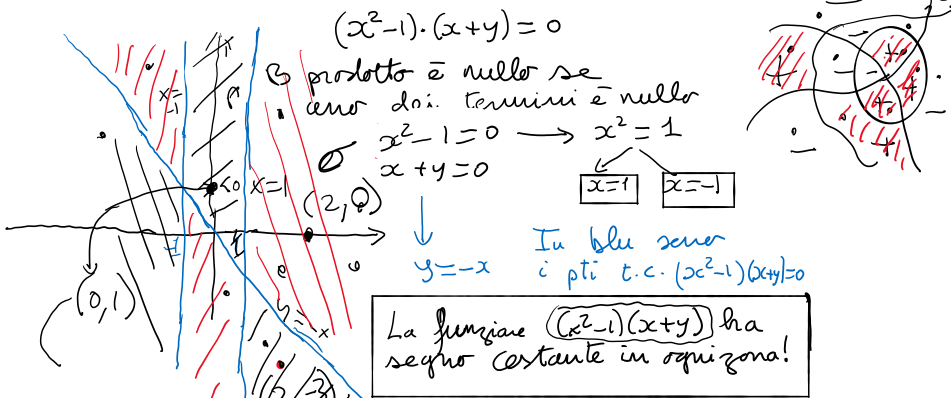 (x²-1)·(x+y)=0
prodotto è nullo se
uno dei termini è nullo
x²-1=0 → x²=1
x+y=0
x=1 x=-1
y=-x
In blu sono
i pti t.c. (x²-1)(x+y)=0
La funzione (x²-1)(x+y) ha
segno costante in ogni zona!
x=-1
<0
x=1
(2,0)
-1
1
(0,1)
y=-x